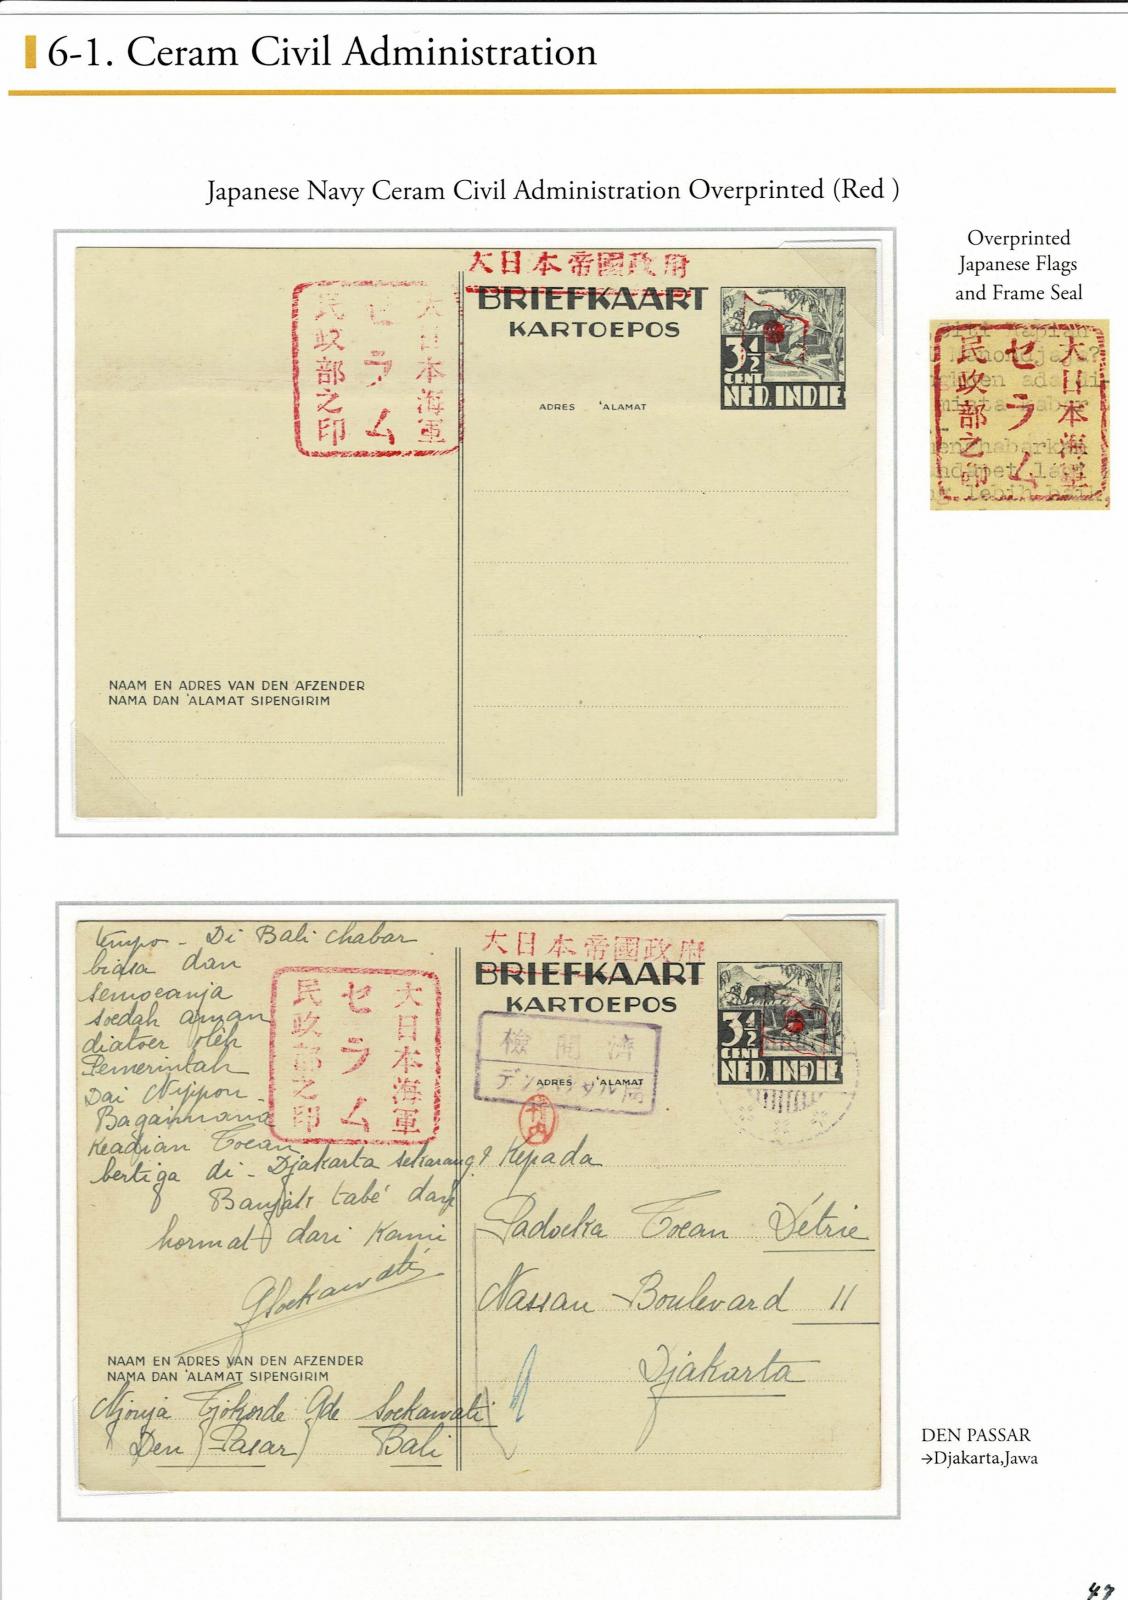 6-1. Ceram Civil Administration
Japanese Navy Ceram Civil Administration Overprinted (Red )
Overprinted
Japanese Flags
and Frame Seal
大日本海軍
セラム
民政部之印
大日本帝國政府
BRIEFKAART
KARTOEPOS
3½
CENT
NED. INDIE
ADRES 'ALAMAT
大日本海軍
セラム
民政部之印
NAAM EN ADRES VAN DEN AFZENDER
NAMA DAN 'ALAMAT SIPENGIRIM
tempo - Di Bali chabar
biasa dan
semoeanja
soedah aman
diatoer oleh
Pemerintah
Dai Nippon
Bagaimana
Keadjian Toean
bertiga di - Djakarta sekarang?
Banjak tabé dan
hormat dari Kami
Soekawati
大日本海軍
セラム
民政部之印
大日本帝國政府
BRIEFKAART
KARTOEPOS
3½
CENT
NED. INDIE
檢閲濟
デンパサル局
ADRES 'ALAMAT
竹内
Kepada
Padoeka Toean Détrie
Nassau-Boulevard 11
Djakarta
NAAM EN ADRES VAN DEN AFZENDER
NAMA DAN 'ALAMAT SIPENGIRIM
Njonja Tjokorde Gde Soekawati
Den Pasar Bali
DEN PASSAR
→Djakarta,Jawa
47